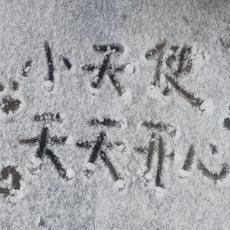 小天使
天天开心